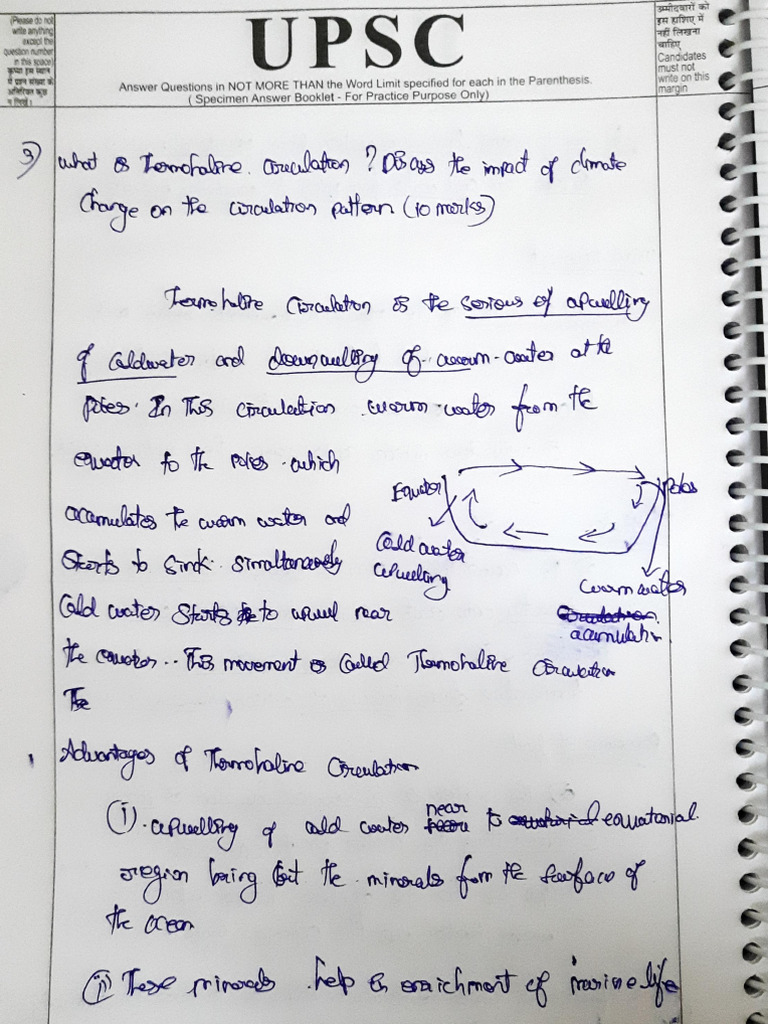 (Please do not
write anything
except the
question number
in this space)
कृपया इस स्थान
में प्रश्न संख्या के
अतिरिक्त कुछ
न लिखें।
UPSC
Answer Questions in NOT MORE THAN the Word Limit specified for each in the Parenthesis.
( Specimen Answer Booklet - For Practice Purpose Only)
उम्मीदवारों को
इस हाशिए में
नहीं लिखना
चाहिए
Candidates
must not
write on this
margin
3) what is Thermohaline Circulation ? Discuss the impact of climate
change on the circulation pattern (10 marks)
Thermohaline Circulation is the serious of upwelling
of coldwater and downwelling of warm-water at the
poles. In this circulation warm-water from the
equator to the poles which
accumulates the warm water and
starts to sink. simultaneously
Cold water starts to upwell near
the equator.. This movement is called Thermohaline Circulation
The
Equator
Poles
Cold water
upwelling
warm water
acumulation
Advantages of Thermohaline Circulation
(i). upwelling of cold water near to equatorial
region bring the minerals from the surface of
the ocean
(ii) These minerals help in enrichment of marine life